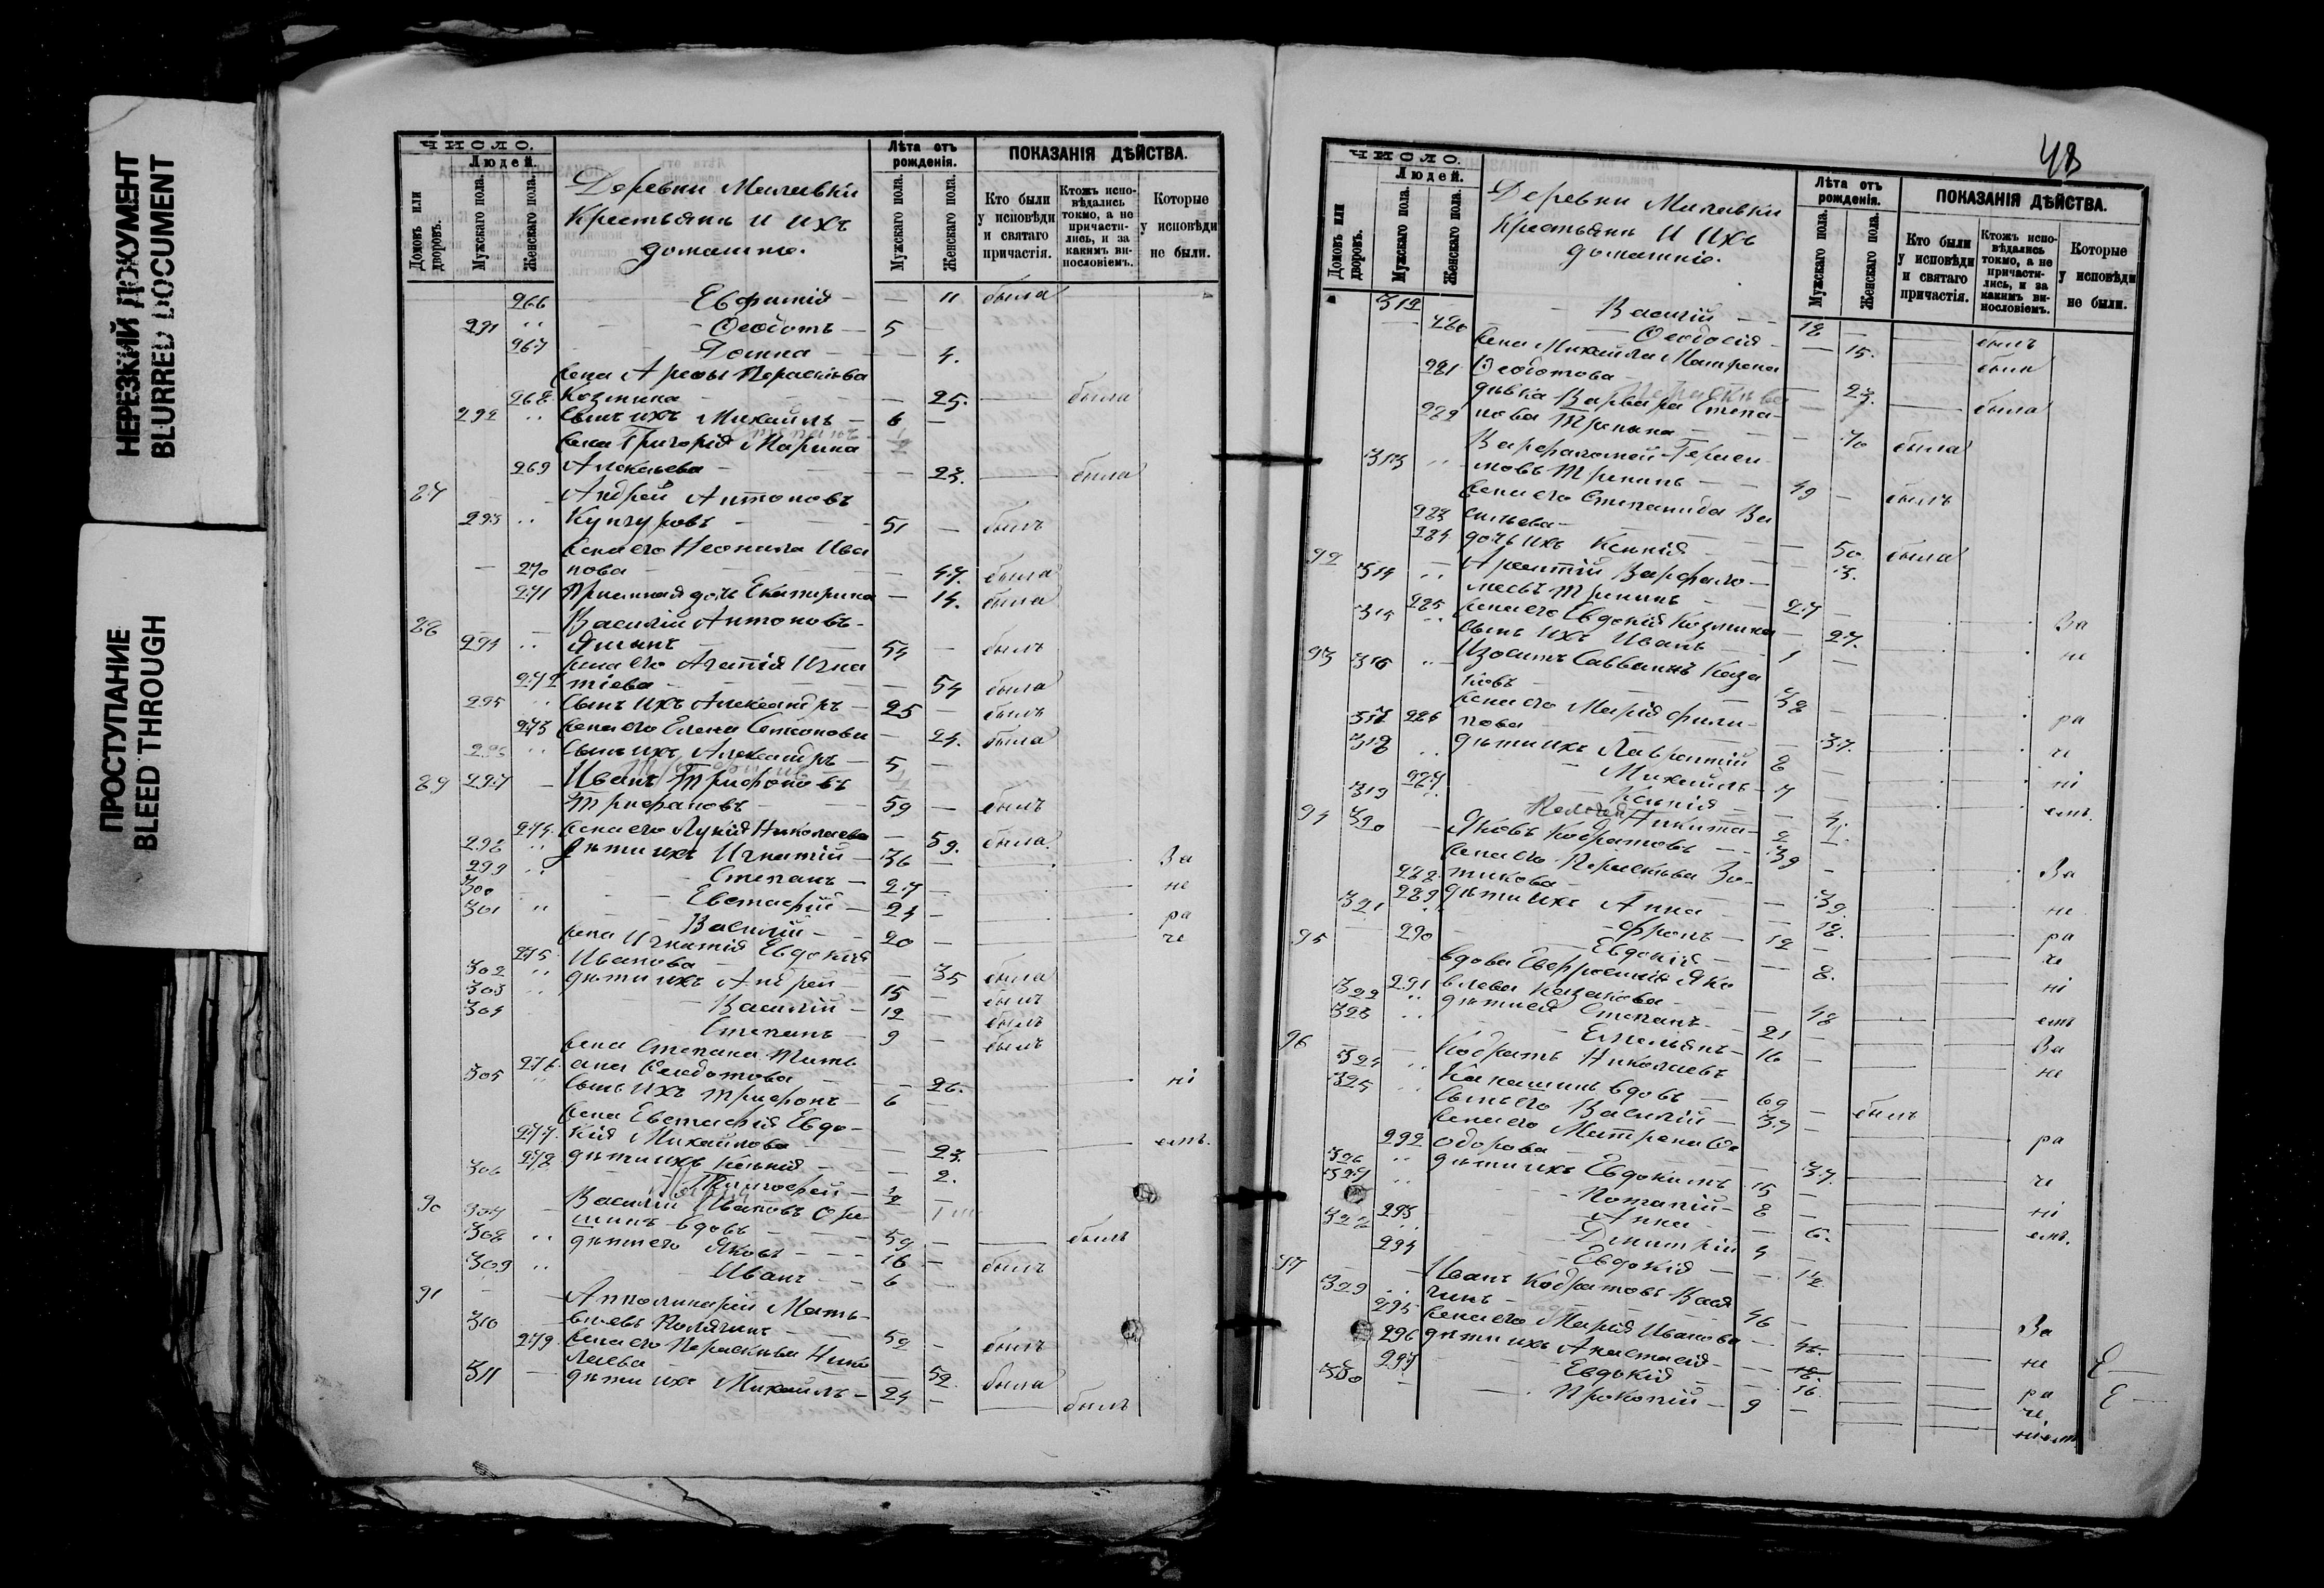 НЕРЕЗКИЙ ДОКУМЕНТ
BLURRED DOCUMENT
ПРОСТУПАНИЕ
BLEED THROUGH
ЧИСЛО.
Людей.
Домовъ или дворовъ.
Мужскаго пола.
Женскаго пола.
Деревни Милавки
Крестьянъ и ихъ
домашніе.
Лѣта отъ
рожденія.
Мужскаго пола.
Женскаго пола.
ПОКАЗАНІЯ ДѢЙСТВА.
Кто были
у исповѣди
и святаго
причастія.
Ктожъ испо-
вѣдались
токмо, а не
причасти-
лись, и за
какимъ ви-
нословіемъ.
Которые
у исповѣди
не были.
266 Евфимія - 11 была
291 Ѳеодотъ 5 -
267 Домна - 4.
жена Арефы Параскева
268 Козмина - 25. была
292 сынъ ихъ Михаилъ 6 -
жена Григорія Марина
269 Алексѣева - 23. была
87 Андрей Антоновъ
293 Кунгуровъ 51 - былъ
жена его Неонила Ива
270 нова - 47. была
271 Пріемная дочь Екатерина - 14. была
88 Василій Антоновъ
294 54 - былъ
жена его Агафія Игна
272 тіева - 54 была
295 сынъ ихъ Александръ 25 - былъ
273 жена его Елена - 24. была
296 сынъ ихъ Александръ 5 -
89 297 Иванъ Трифоновъ
Трифановъ 59 - былъ
274. жена его Лукія Николаева - 59. была
298 дѣти ихъ Игнатій 36 - За
299 Степанъ 27 - не
300 Евстафій 24 - ра
301 Василій 20 - че
жена Игнатія Евдокія
275 Иванова - 35 была
302 дѣти ихъ Андрей 15 - былъ
303 Василій 12 - былъ
304 Степанъ 9 - былъ
жена Степана Тать
276. яна Ѳеодотова - 26. ні
305 сынъ ихъ Трифонъ 6 -
жена Евстафія Евдо-
277 кія Михайлова - 23. емъ.
278 дѣти ихъ Ксенія - 2.
306 Тимофей 1/2 -
90 307 Василій Ивановъ
вдовъ 59 - былъ
308 дѣти его Яковъ 16 - былъ
309 Иванъ 6 -
91 Апполинарій Матѳ-
310 вѣевъ 52 - былъ
279 жена его Параскева Нико
лаева - 52. была
311 дѣти ихъ Михаилъ 24 - былъ
48
ЧИСЛО.
Людей.
Домовъ или дворовъ.
Мужскаго пола.
Женскаго пола.
Деревни Милавки
Крестьянъ и ихъ
домашніе.
Лѣта отъ
рожденія.
Мужскаго пола.
Женскаго пола.
ПОКАЗАНІЯ ДѢЙСТВА.
Кто были
у исповѣди
и святаго
причастія.
Ктожъ испо-
вѣдались
токмо, а не
причасти-
лись, и за
какимъ ви-
нословіемъ.
Которые
у исповѣди
не были.
312 Василій 18 - былъ
280 Ѳеодосія - 15. была
жена Михаила Матрена
281 Ѳеодотова - 23. была
дѣвка Варвара Степа-
282 нова - 70 была
Варфаломей
313 49 - былъ
жена его Степанида Ва
283 сильева - 50. была
284 дочь ихъ Ксенія - 3.
92 Арефій Варфало-
314 меевъ 27 - За
285 жена его Евдокія Козмина - 27. не
315 сынъ ихъ Иванъ 1 -
93 316 Изосимъ Савваинъ Каза
ковъ 38 - ра
286 жена его Марія Фили-
пова - 37. че
317 дѣти ихъ Лаврентій 8 - ні
318 Михаилъ 7 - емъ.
287 Ксенія - 4.
319 Никита 2
94 320 Яковъ Кодратовъ 39 - За
жена его Параскева Зо-
288 тикова - 39. не
289 дѣти ихъ Анна - 18. ра
321 Фролъ 12 - че
290 Евдокія - 8. ні
95 вдова Евфросинія Яко
291 влева Казакова - 48 емъ
322 дѣти ея Степанъ 21 - За
323 Емельянъ 16 - не
96 Кодратъ Николаевъ
324 вдовъ 69 - былъ
325 сынъ его Василій 37 - ра
жена его Матрена Ѳе
292 одорова - 37. че
326 дѣти ихъ Евдокимъ 15 - ні
327 Потапій 8 - емъ.
293 Анна - 6.
328 Димитрій 4 -
294 Евдокія - 1/2
97 Иванъ Кодратовъ
329 46 - За
295 жена его Марія Иванова - 46. не
296 дѣти ихъ Анастасія - 18. ра
297 Евдокія - 16. че
330 Прокопій 9 - ніемъ